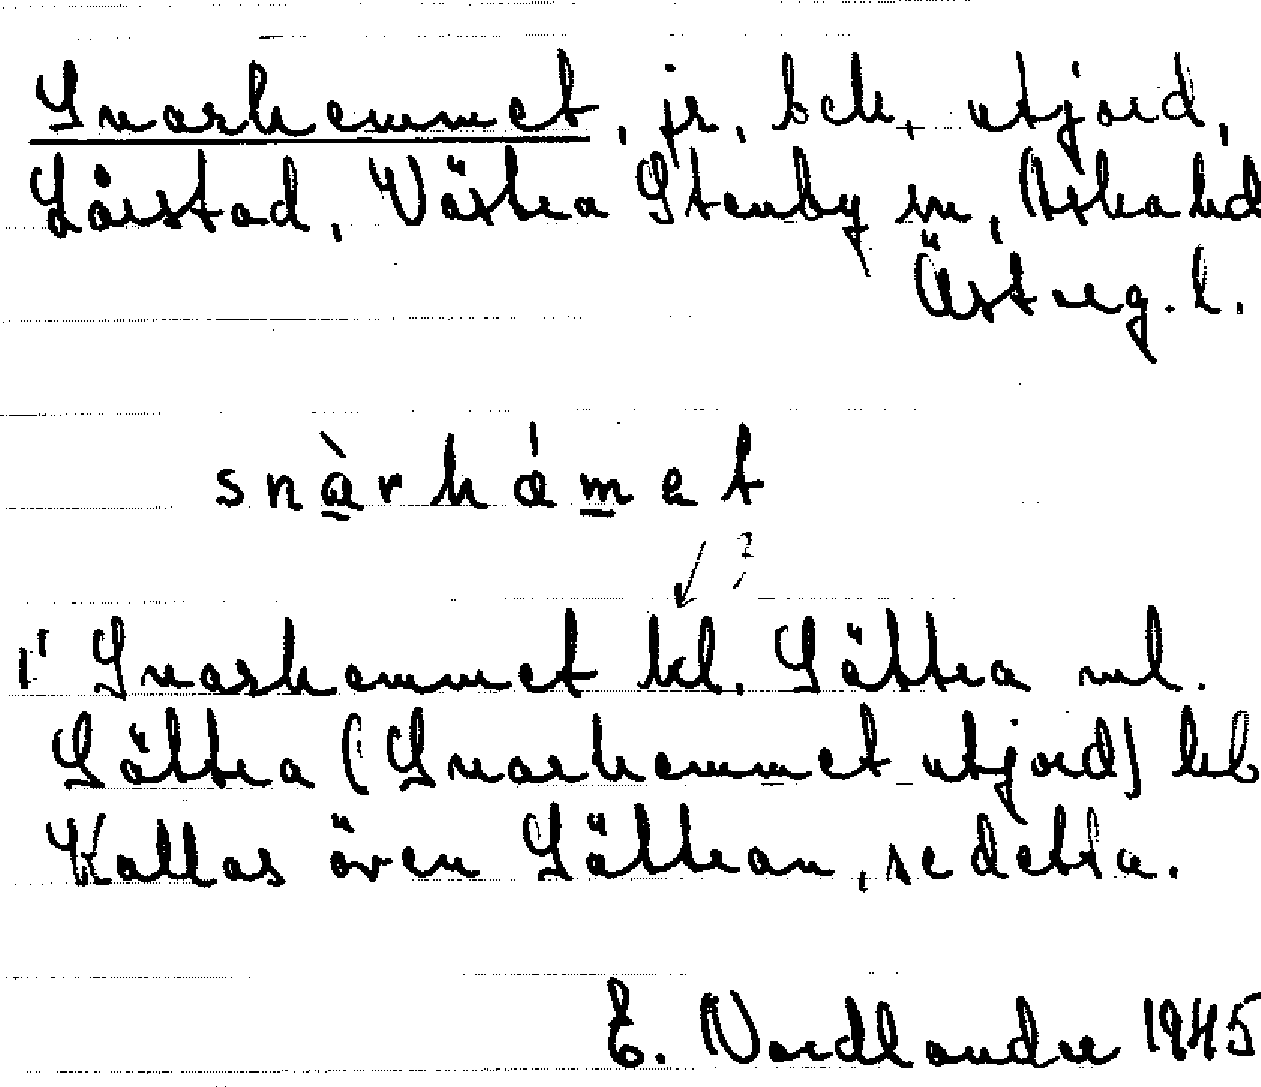 Snarhemmet, jr, beb, utjord,
Lårstad, Västra Stenby sn, Aska hd
Östergl.
snàrhámet
?
1' Snarhemmet kl. Sättra ml.
Sättra (Snarhemmet utjord) beb
Kallas även Sättran, se detta.
E. Nordlander 1945